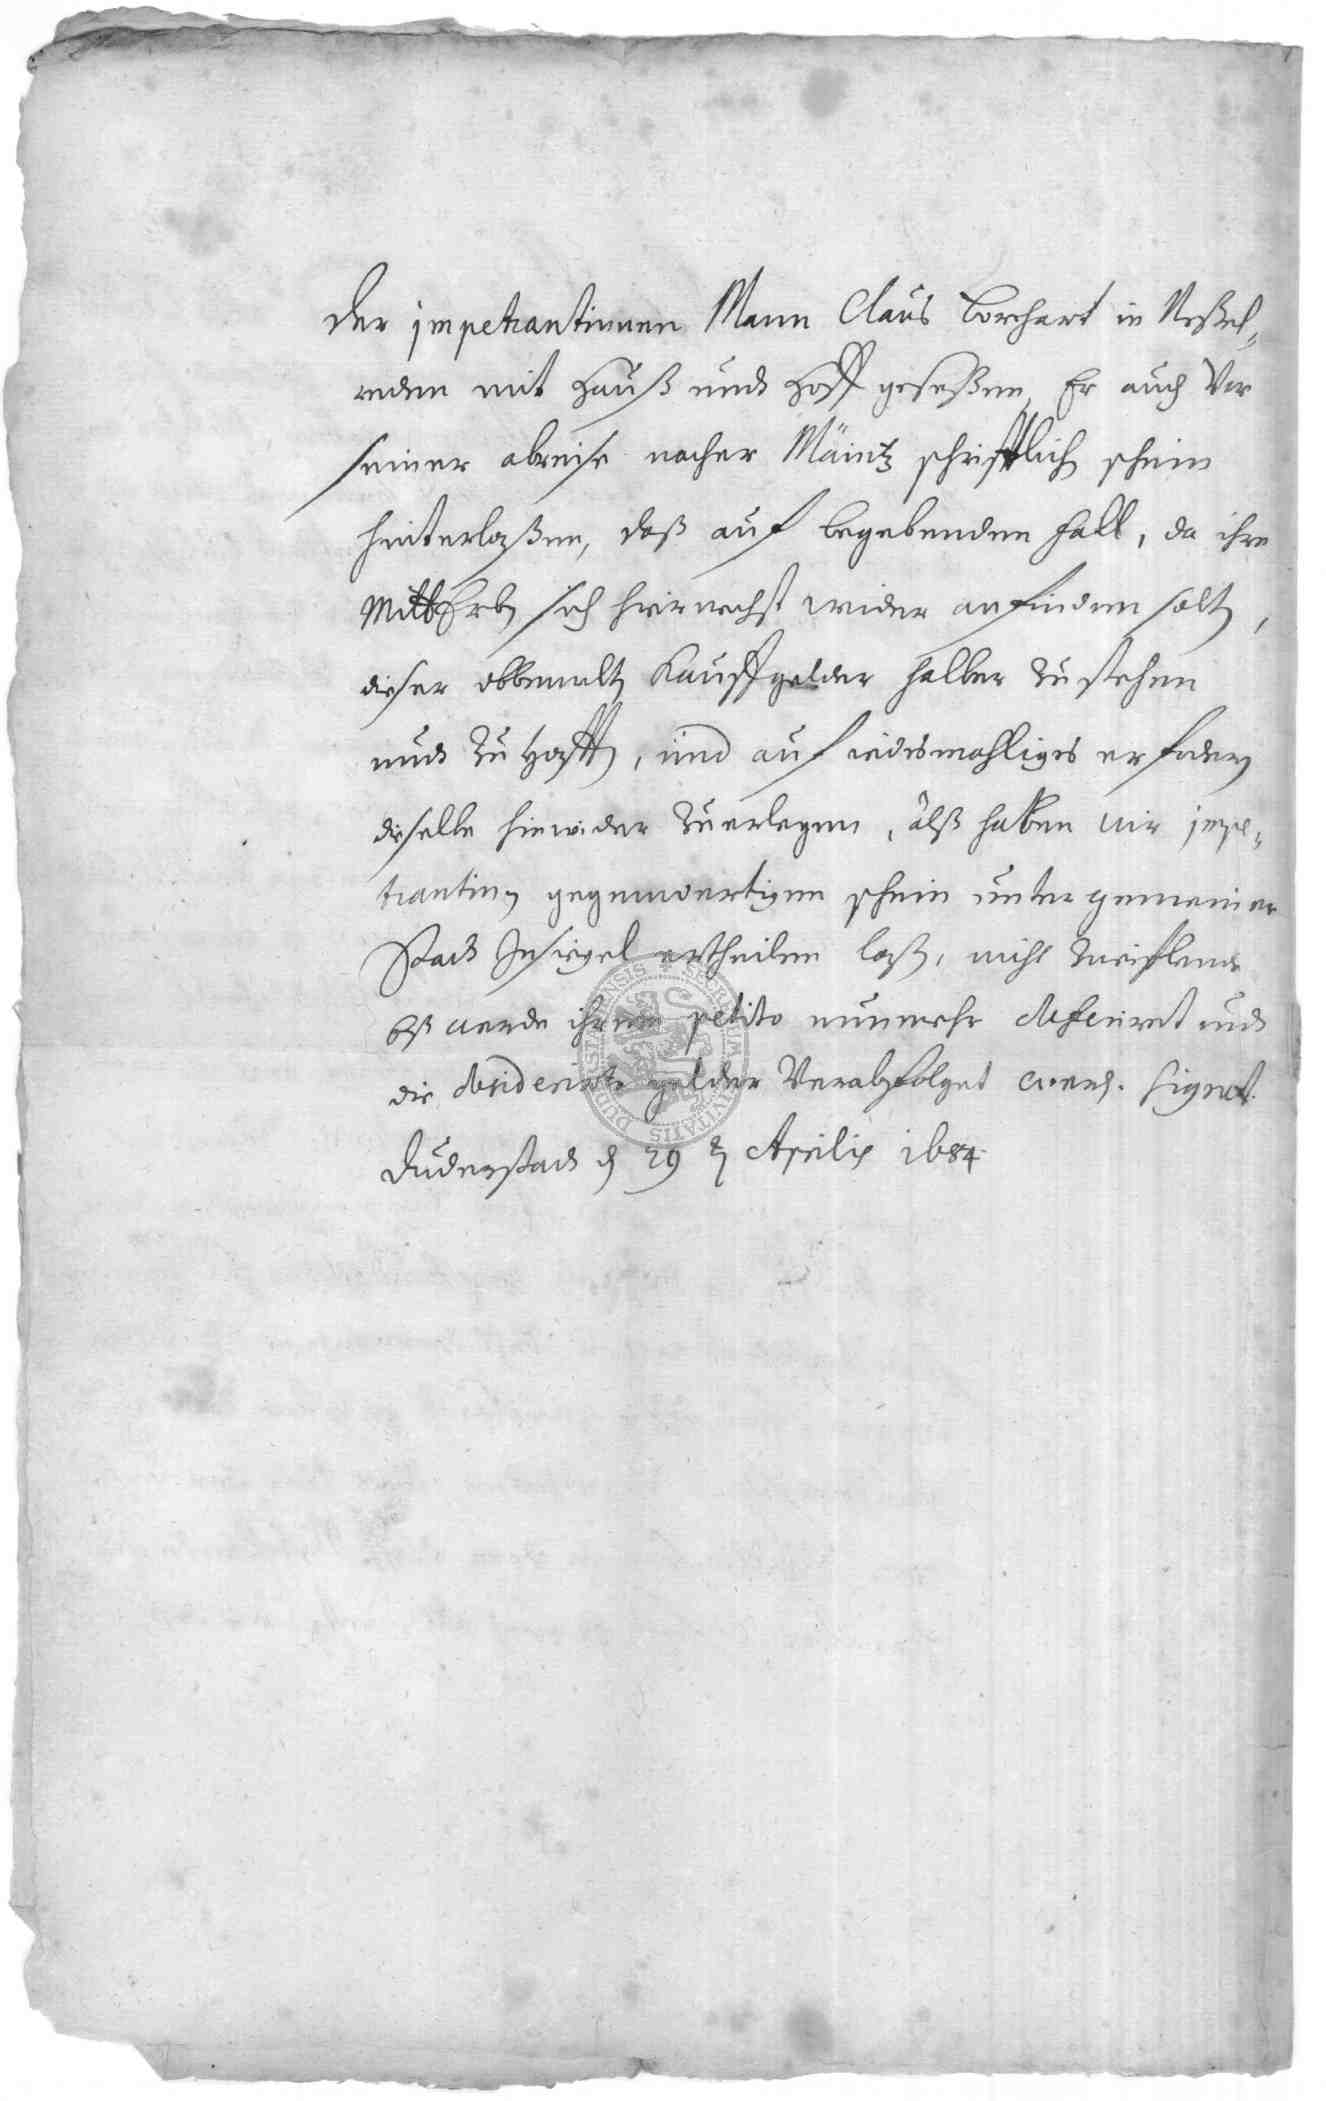 der jmpetrantinnen Mann Claus Borchart in Neßel-
reden mit Hauß undt Hoff geseßen, Er auch Vor
seiner abreise nacher Mäintz schrifftlich schein
hinterlaßen, daß auf begebenden fall, da ihre
MittErben sich hiernechst wider anfinden solten,
dieser obbemelten Kauffgelder halber zu stehen
undt zu hafften, und auf iedesmahliges erfodern
dieselbe hinwider zuerlegen, alß haben wir jmpe-
trantinen gegenwertigen schein unter gemeiner
Stadt Insiegel ertheilen laßen, nicht zweiflende
eß werde ihrem petito nunmehr deferiret undt
die desiderirte gelder Verabfolget werden. Signat.
Duderstadt den 29 Aprilis 1684
SECRETUM CIVITATIS DUDERSTADENSIS